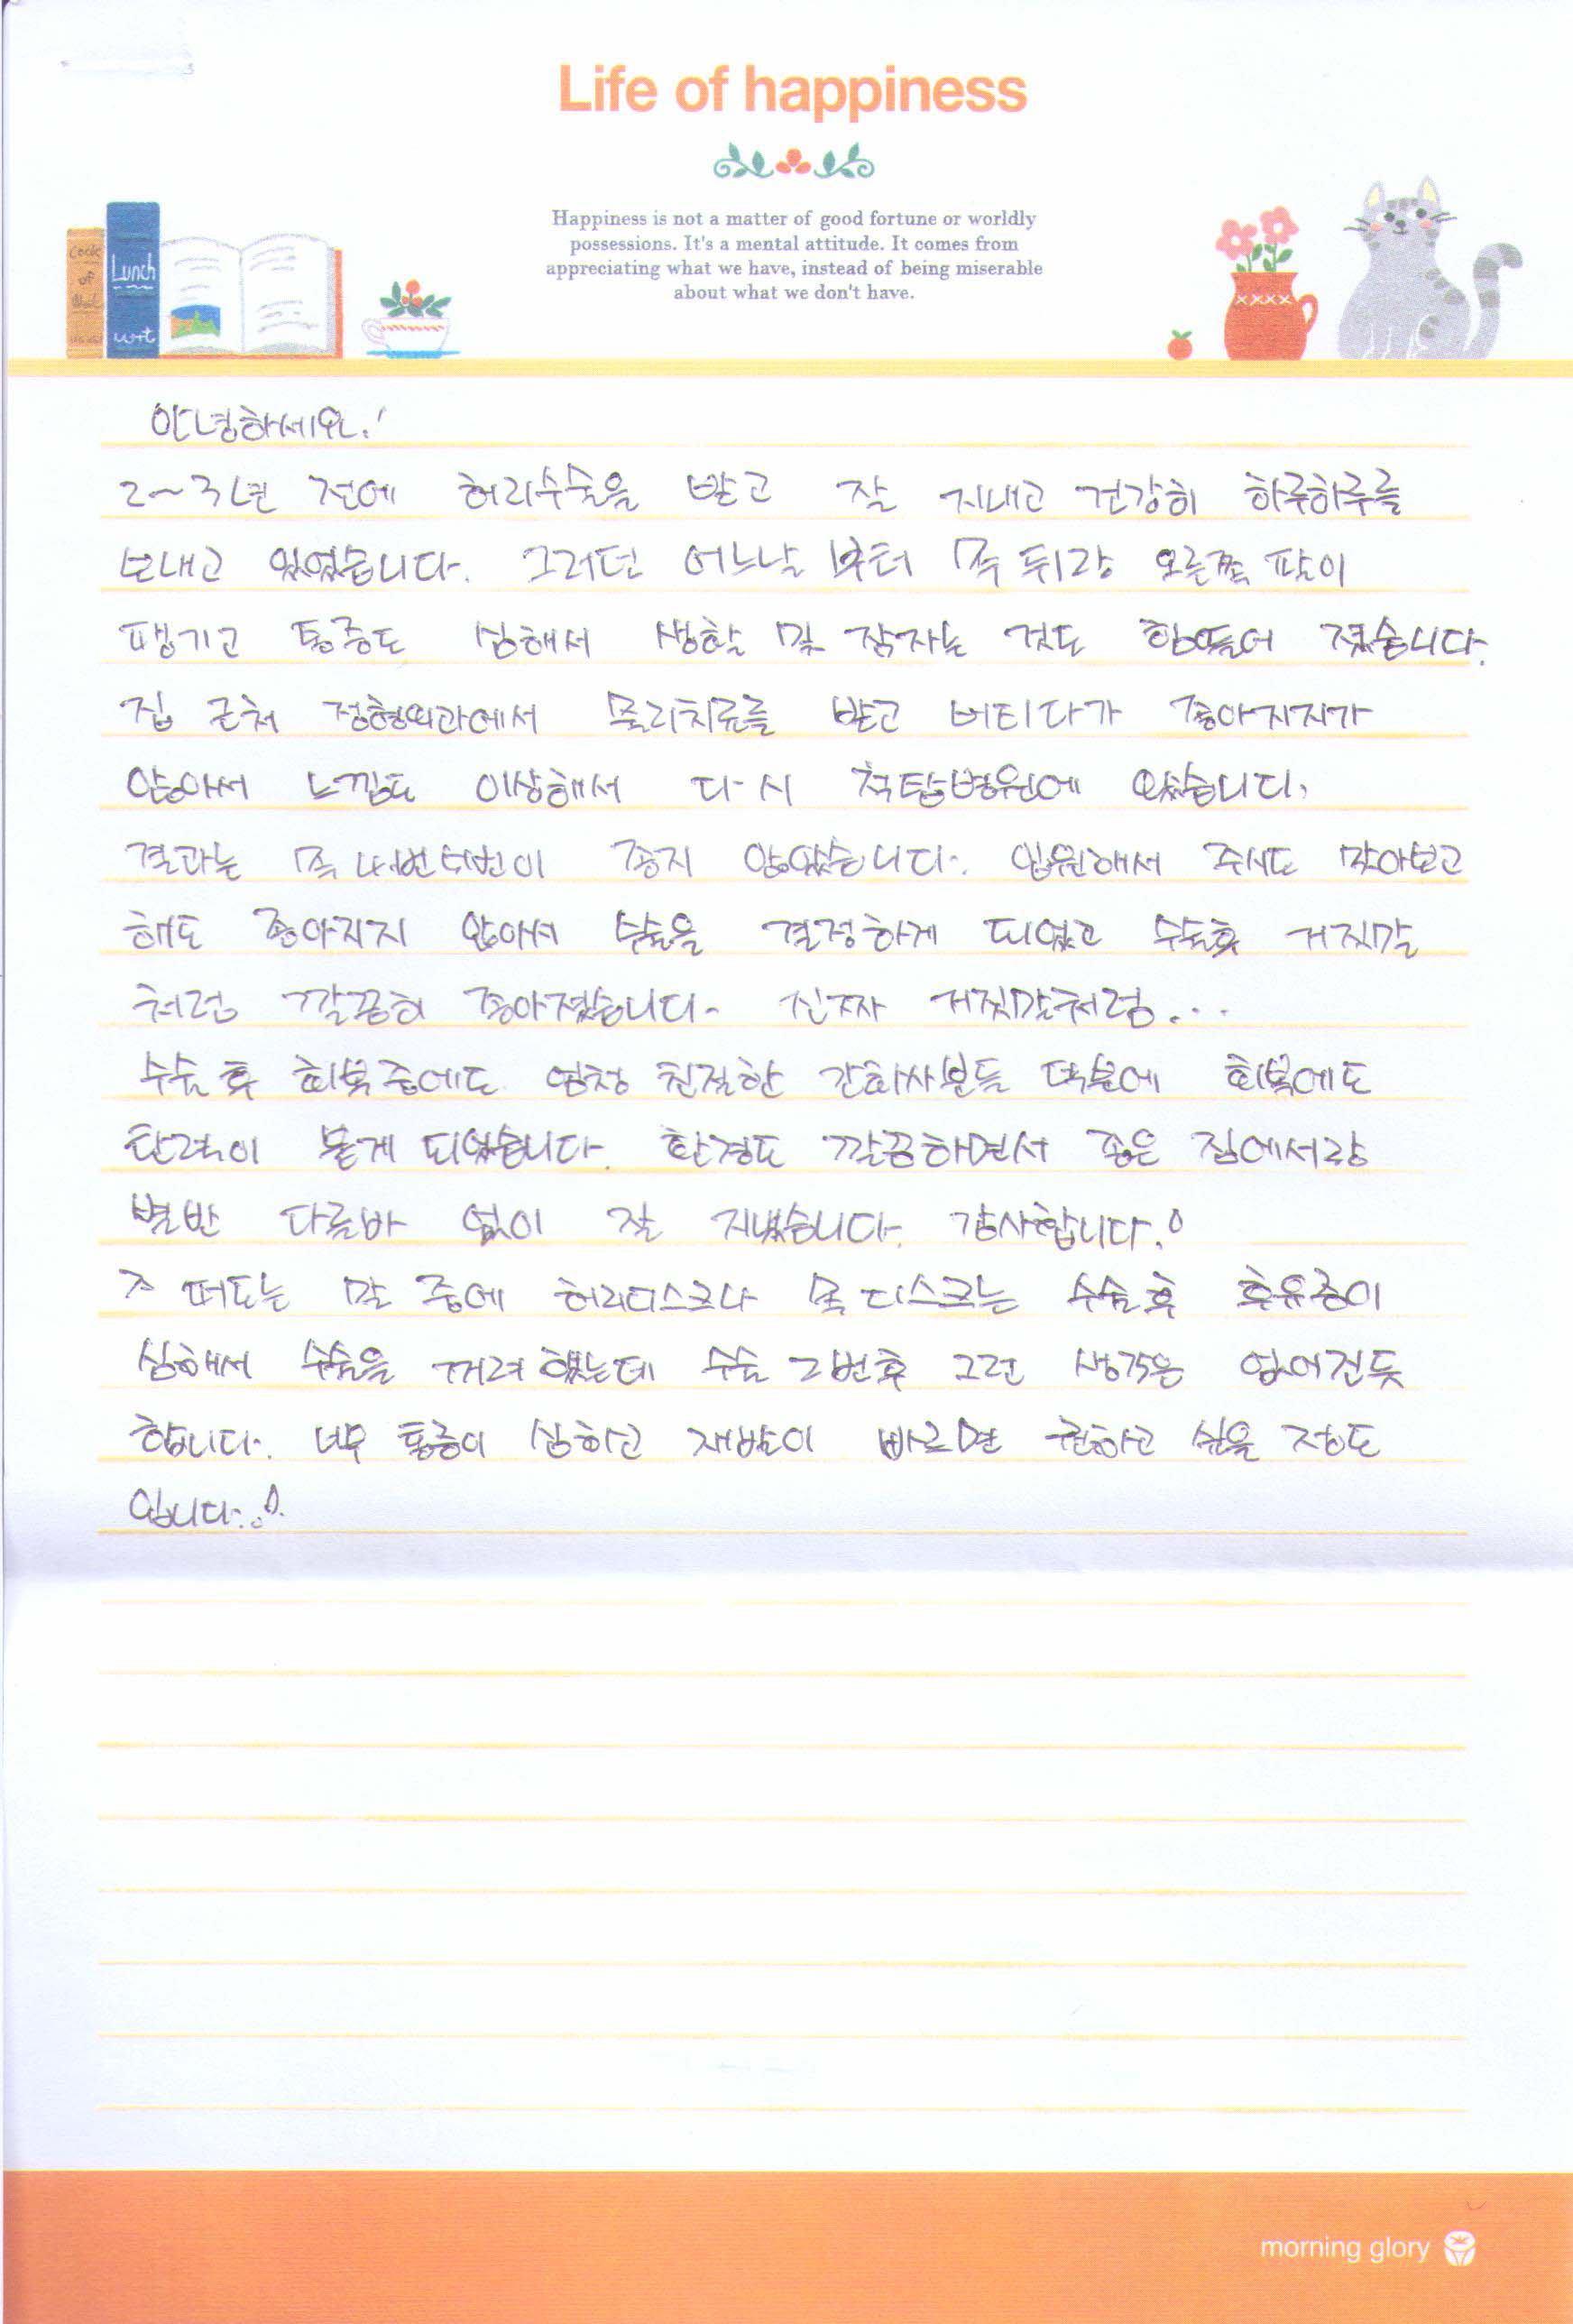 Life of happiness
Happiness is not a matter of good fortune or worldly
possessions. It's a mental attitude. It comes from
appreciating what we have, instead of being miserable
about what we don't have.
Cook
of
Lunch
안녕하세요!
2~3년 전에 허리수술을 받고 잘 지내고 건강히 하루하루를
보내고 있었습니다. 그러던 어느날 부터 목 뒤랑 오른쪽 팔이
땡기고 통증도 심해서 생활 및 잠자는 것도 힘들어 졌습니다.
집 근처 정형외과에서 물리치료를 받고 버티다가 좋아지지가
않아서 느낌도 이상해서 다시 척탑병원에 왔습니다.
결과는 목 네번 이 좋지 않았습니다. 입원해서 주사도 맞아보고
해도 좋아지지 않아서 수술을 결정하게 되었고 수술후 거짓말
처럼 깔끔히 좋아졌습니다. 진짜 거짓말처럼...
수술 후 회복 중에도 엄청 친절한 간호사분들 덕분에 회복에도
탄력이 붙게 되었습니다. 환경도 깔끔하면서 좋은 집에서랑
별반 다를바 없이 잘 지냈습니다. 감사합니다.!
떠도는 말 중에 허리디스크나 목 디스크는 수술 후 후유증이
심해서 수술을 꺼려 했는데 수술 2번 후 그런 생각은 없어진듯
합니다. 너무 통증이 심하고 재발이 빠르면 권하고 싶을 정도
입니다..!
morning glory